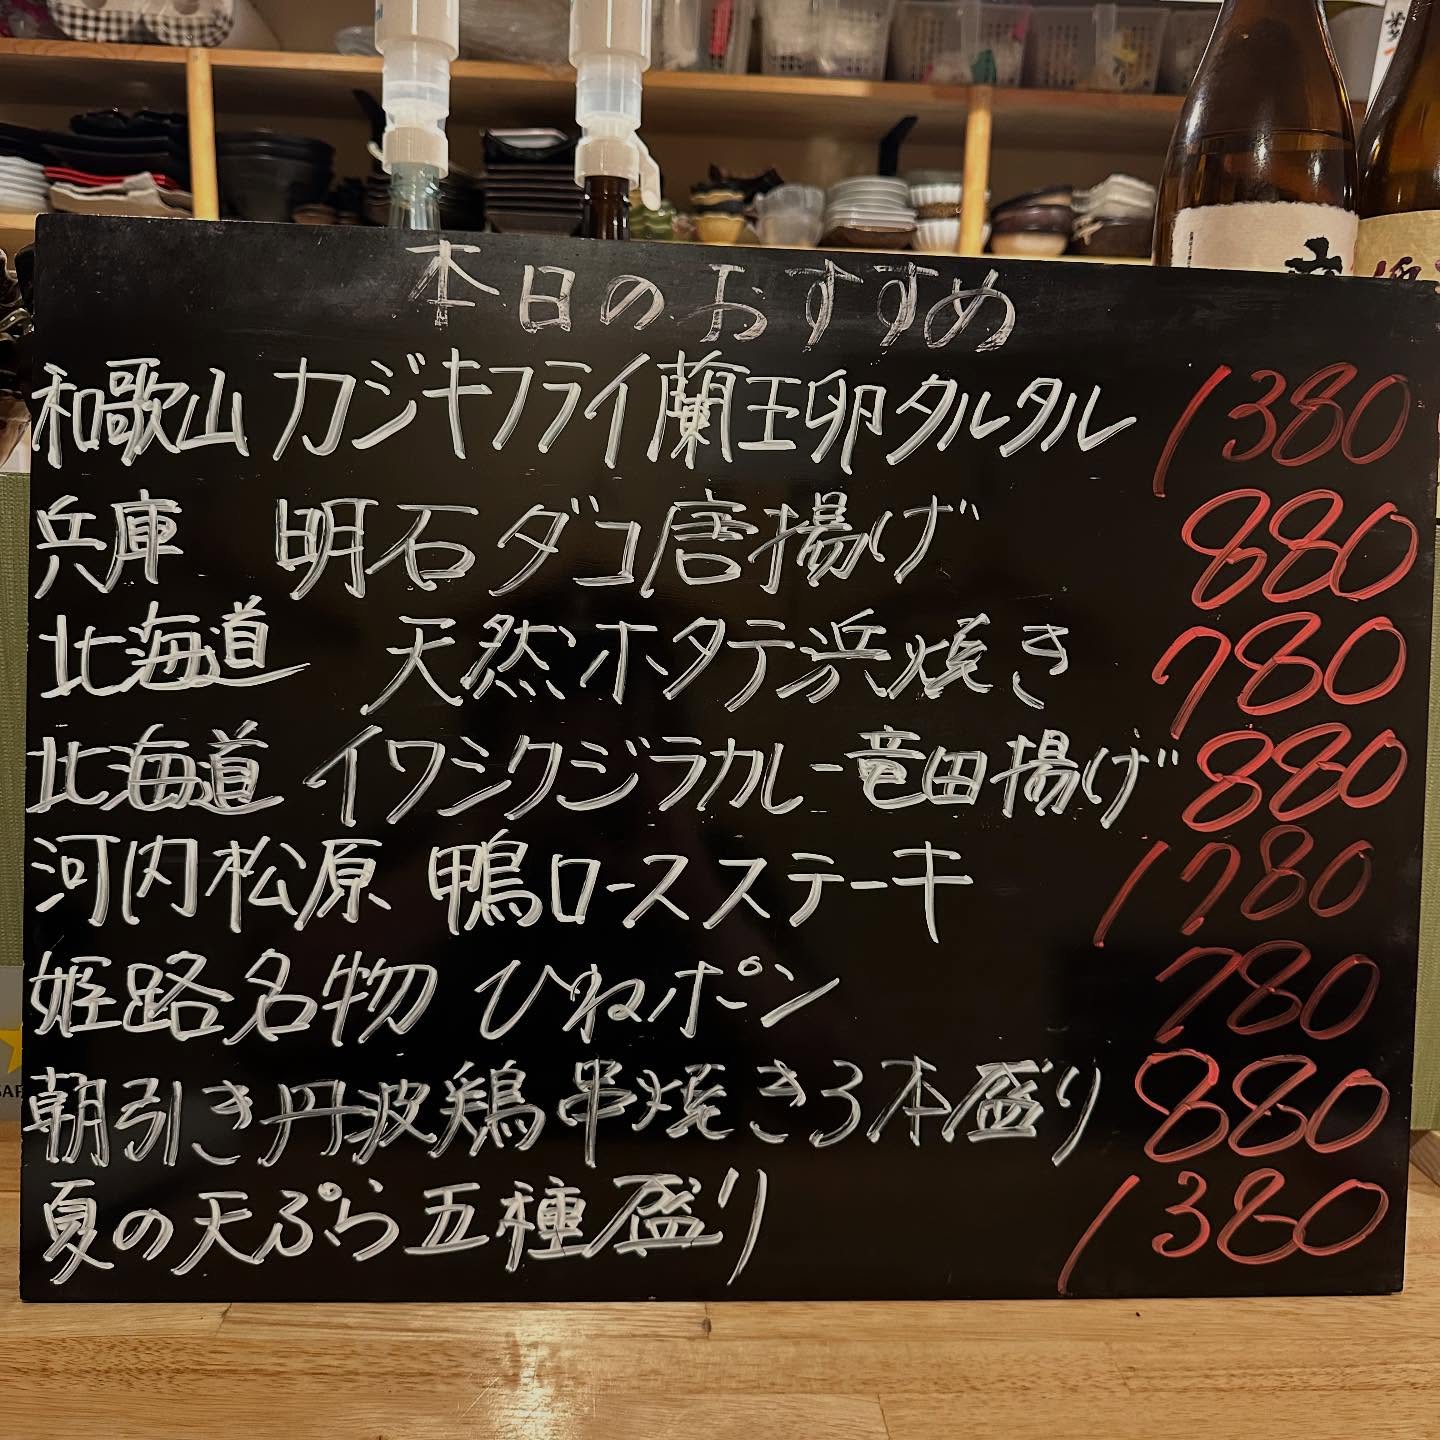 本日のおすすめ
和歌山 カジキフライ蘭王卵タルタル 1380
兵庫 明石ダコ唐揚げ 880
北海道 天然ホタテ浜焼き 780
北海道 イワシクジラカレー竜田揚げ 880
河内松原 鴨ロースステーキ 1780
姫路名物 ひねポン 780
朝引き丹波鶏串焼き3本盛り 880
夏の天ぷら五種盛り 1380